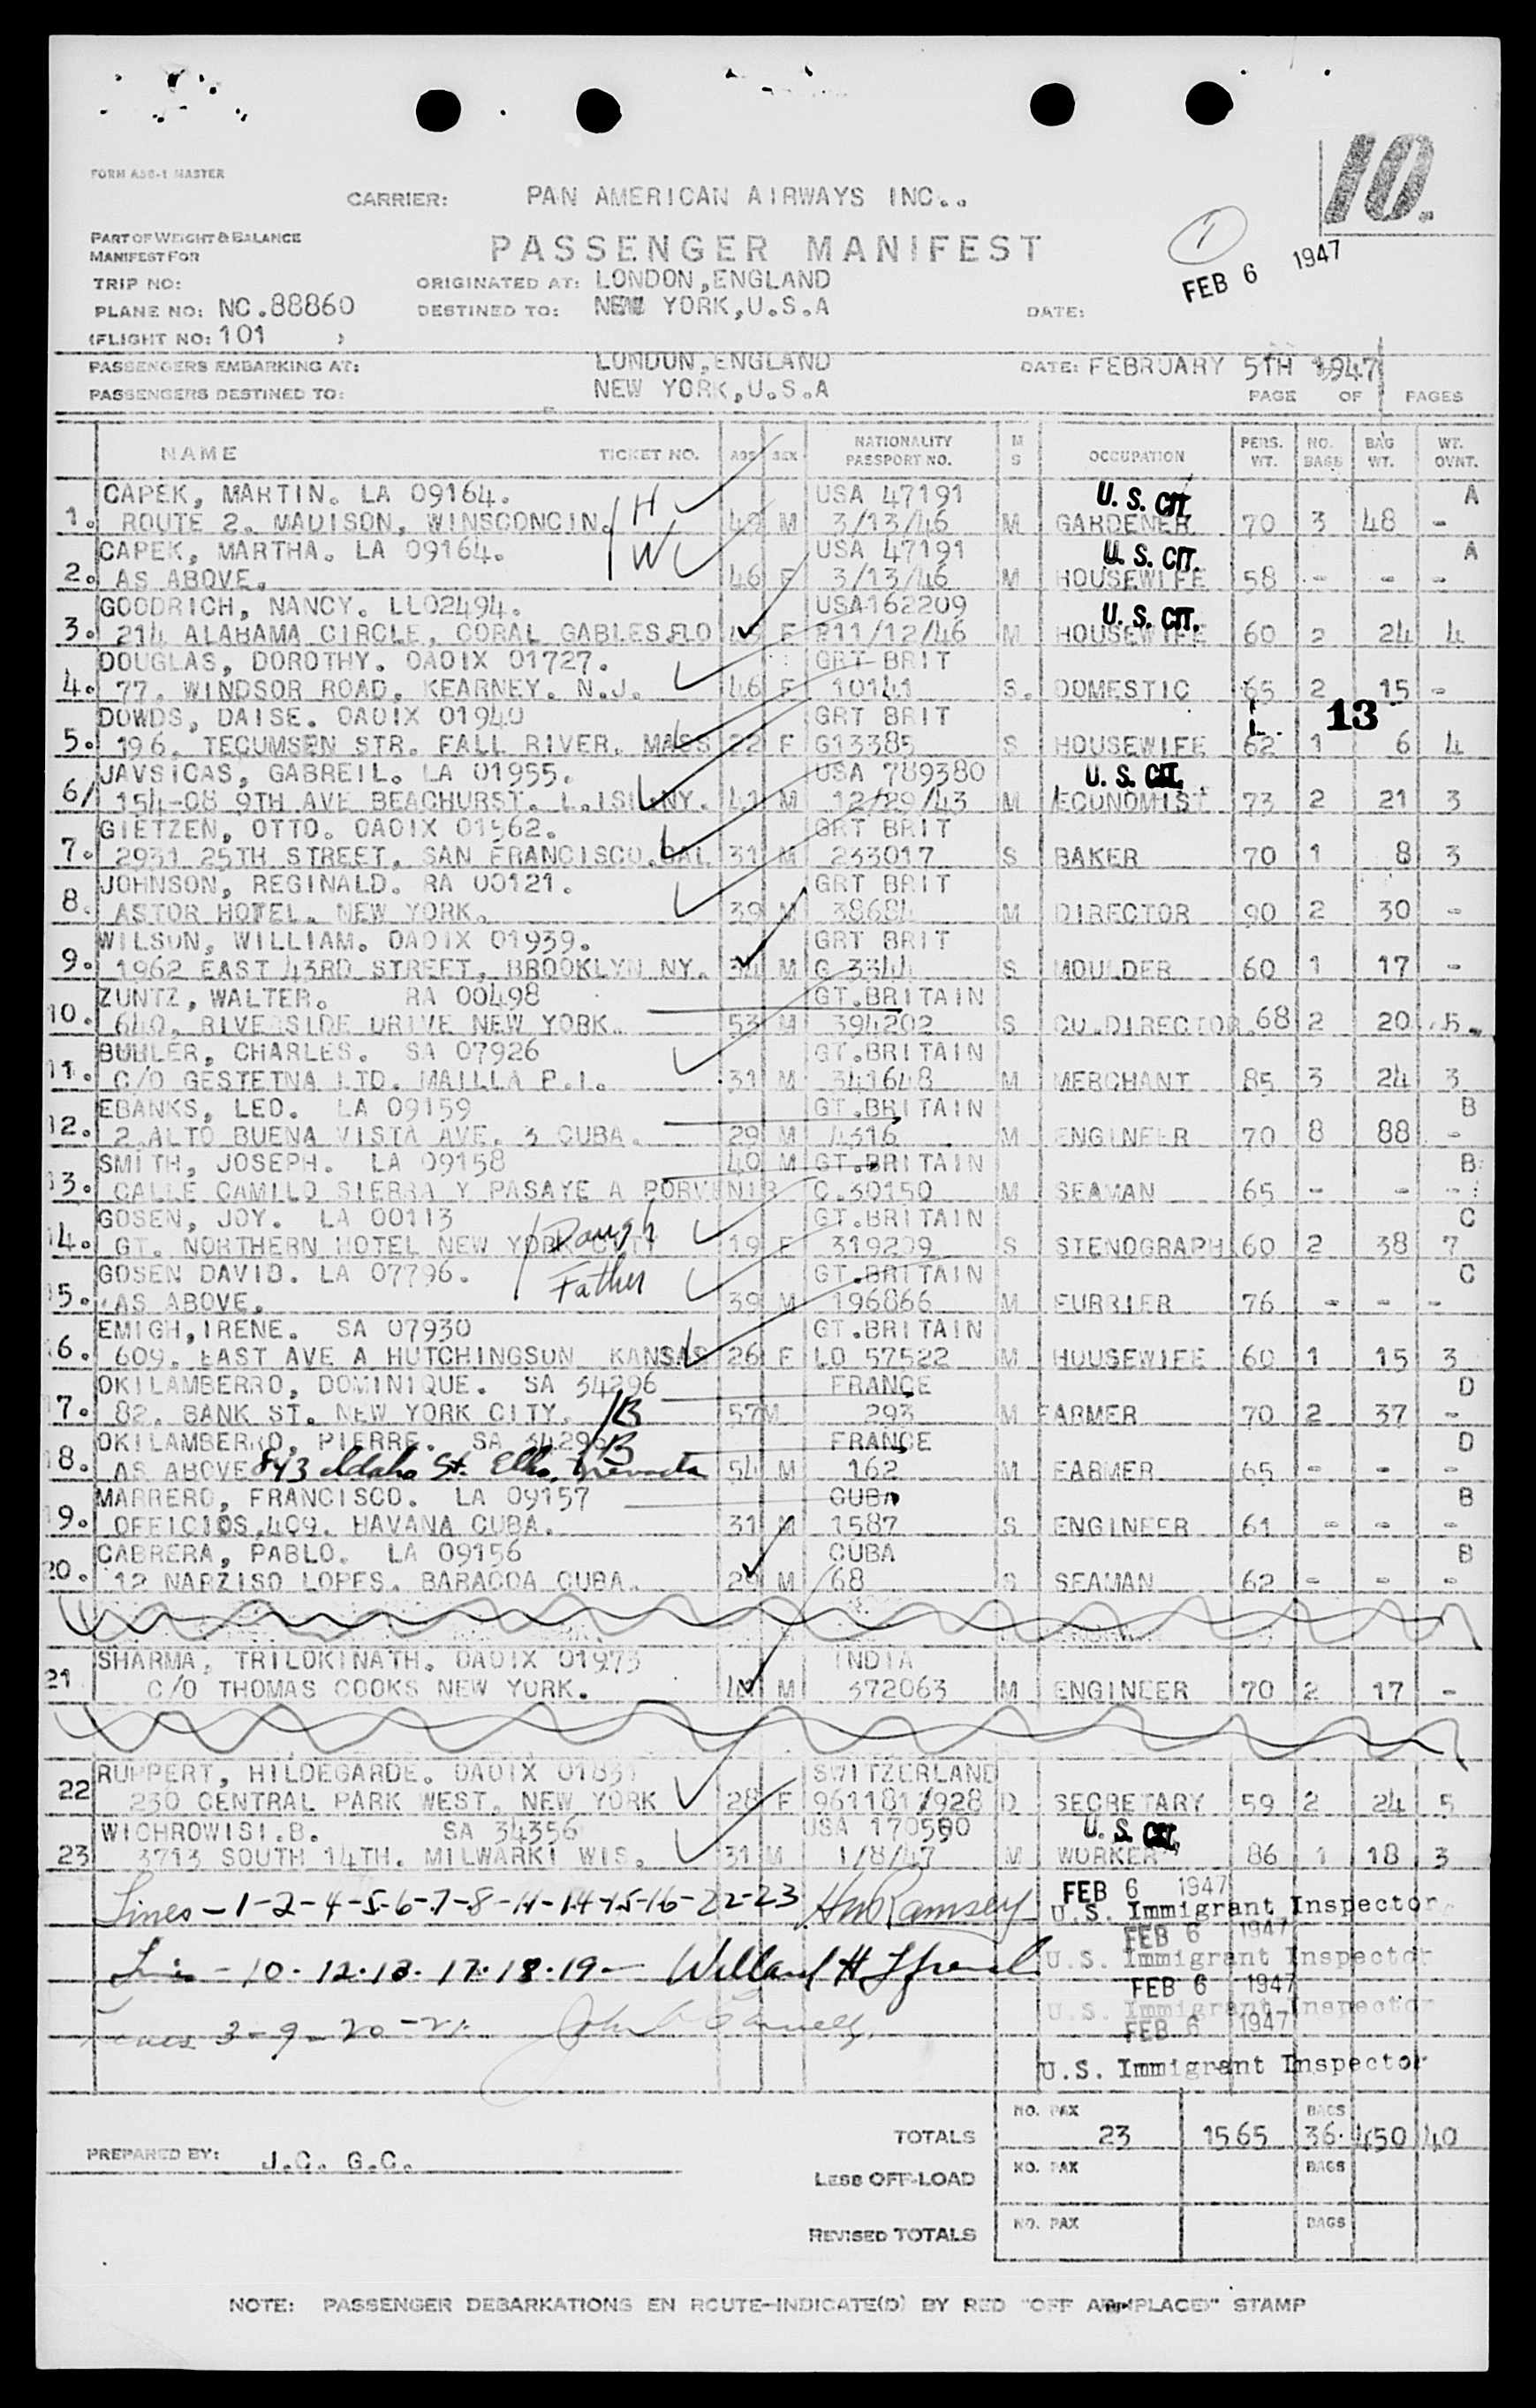 FORM ASB-1 MASTER
10.
CARRIER: PAN AMERICAN AIRWAYS INC..
PART OF WEIGHT & BALANCE
MANIFEST FOR
PASSENGER MANIFEST
1
FEB 6 1947
TRIP NO:
ORIGINATED AT: LONDON,ENGLAND
PLANE NO: NC.88860
DESTINED TO: NEW YORK,U.S.A
DATE:
(FLIGHT NO: 101 )
PASSENGERS EMBARKING AT: LONDON,ENGLAND
DATE: FEBRUARY 5TH 1947
PASSENGERS DESTINED TO: NEW YORK,U.S.A
PAGE OF PAGES
NAME TICKET NO. AGE SEX NATIONALITY PASSPORT NO. M S OCCUPATION PERS. WT. NO. BAGS BAG WT. WT. OVNT.
CAPEK, MARTIN. LA 09164. H USA 47191 U.S. CIT. A
1. ROUTE 2. MADISON, WINSCONCIN. 49 M 3/13/46 M GARDENER 70 3 48 -
CAPEK, MARTHA. LA 09164. W USA 47191 U.S. CIT. A
2. AS ABOVE. 46 F 3/13/46 M HOUSEWIFE 58 - - -
GOODRICH, NANCY. LL02494. USA162209 U.S. CIT.
3. 214 ALABAMA CIRCLE, CORAL GABLES,FLO F 11/12/46 M HOUSEWIFE 60 2 24 4
DOUGLAS, DOROTHY. OAOIX 01727. GRT BRIT
4. 77. WINDSOR ROAD, KEARNEY. N.J. 46 F 10141 S. DOMESTIC 65 2 15 -
DOWDS, DAISE. OAOIX 01940 GRT BRIT 13
5. 196. TECUMSEN STR. FALL RIVER. MASS 22 F G13385 S HOUSEWIFE 62 1 6 4
JAVSICAS, GABREIL. LA 01955. USA 789380 U.S. CIT.
6/ 154-08 9TH AVE BEACHURST. L.ISL NY. 41 M 12/29/43 M ECONOMIST 73 2 21 3
GIETZEN, OTTO. OAOIX 01562. GRT BRIT
7. 2931 25TH STREET, SAN FRANCISCO.CAL 31 M 233017 S BAKER 70 1 8 3
JOHNSON, REGINALD. RA 00121. GRT BRIT
8. ASTOR HOTEL. NEW YORK. 39 M 38684 M DIRECTOR 90 2 30 -
WILSON, WILLIAM. OAOIX 01939. GRT BRIT
9. 1962 EAST 43RD STREET, BROOKLYN NY. 34 M G 3344 S MOULDER 60 1 17 -
ZUNTZ, WALTER. RA 00498 GT.BRITAIN
10. 640. RIVERSIDE DRIVE NEW YORK. 53 M 394202 S CO.DIRECTOR. 68 2 20 5.
BUHLER, CHARLES. SA 07926 GT.BRITAIN
11. C/O GESTETNA LTD. MAILLA P.I. 31 M 341648 M MERCHANT 85 3 24 3
EBANKS, LEO. LA 09159 GT.BRITAIN B
12. 2 ALTO BUENA VISTA AVE. 3 CUBA. 29 M 4316 M ENGINEER 70 8 88 -
SMITH, JOSEPH. LA 09158 40 M GT.BRITAIN B
13. CALLE CAMILO SIERRA Y PASAYE A PORVENIR C.30150 M SEAMAN 65 - - -
GOSEN, JOY. LA 00113 Daugh GT.BRITAIN C
14. GT. NORTHERN HOTEL NEW YORK CITY 19 F 319209 S STENOGRAPH 60 2 38 7
GOSEN DAVID. LA 07796. Father GT.BRITAIN C
15. AS ABOVE. 39 M 196866 M FURRIER 76 - - -
EMIGH,IRENE. SA 07930 GT.BRITAIN
16. 609. EAST AVE A HUTCHINGSON KANSAS 26 F LO 57522 M HOUSEWIFE 60 1 15 3
OKILAMBERRO, DOMINIQUE. SA 34296 FRANCE D
17. 82. BANK ST. NEW YORK CITY. B 57 M 293 M FARMER 70 2 37 -
OKILAMBERRO, PIERRE. SA 34296 B FRANCE D
18. AS ABOVE 843 Idaho St. Elko, Nevada 54 M 162 M FARMER 65 - - -
MARRERO, FRANCISCO. LA 09157 CUBA B
19. OFFICIOS,409. HAVANA CUBA. 31 M 1587 S ENGINEER 61 - - -
CABRERA, PABLO. LA 09156 CUBA B
20. 12 NARZISO LOPES. BARACOA CUBA. 29 M 68 S SEAMAN 62 - - -
SHARMA, TRILOKINATH. OAOIX 01973 INDIA
21 C/O THOMAS COOKS NEW YORK. M 372063 M ENGINEER 70 2 17 -
RUPPERT, HILDEGARDE. OAOIX 01831 SWITZERLAND
22 230 CENTRAL PARK WEST. NEW YORK 28 F 961181/928 D SECRETARY 59 2 24 5
WICHROWISI.B. SA 34356 USA 170590 U.S. CIT.
23 3713 SOUTH 14TH. MILWARKI WIS. 31 M 1/8/47 M WORKER 86 1 18 3
Lines -1-2-4-5-6-7-8-11-14-15-16-22-23 HM Ramsey FEB 6 1947
U.S. Immigrant Inspector
FEB 6 1947
Lines -10.12.13.17.18.19.- Willard H U.S. Immigrant Inspector
FEB 6 1947
U.S. Immigrant Inspector
Lines 3-9-20-21. John FEB 6 1947
U.S. Immigrant Inspector
TOTALS NO. PAX 23 1565 BAGS 36. 450 40
PREPARED BY: J.C. G.C.
LESS OFF-LOAD NO. PAX BAGS
REVISED TOTALS NO. PAX BAGS
NOTE: PASSENGER DEBARKATIONS EN ROUTE-INDICATE(D) BY RED "OFF AIRPLACE" STAMP